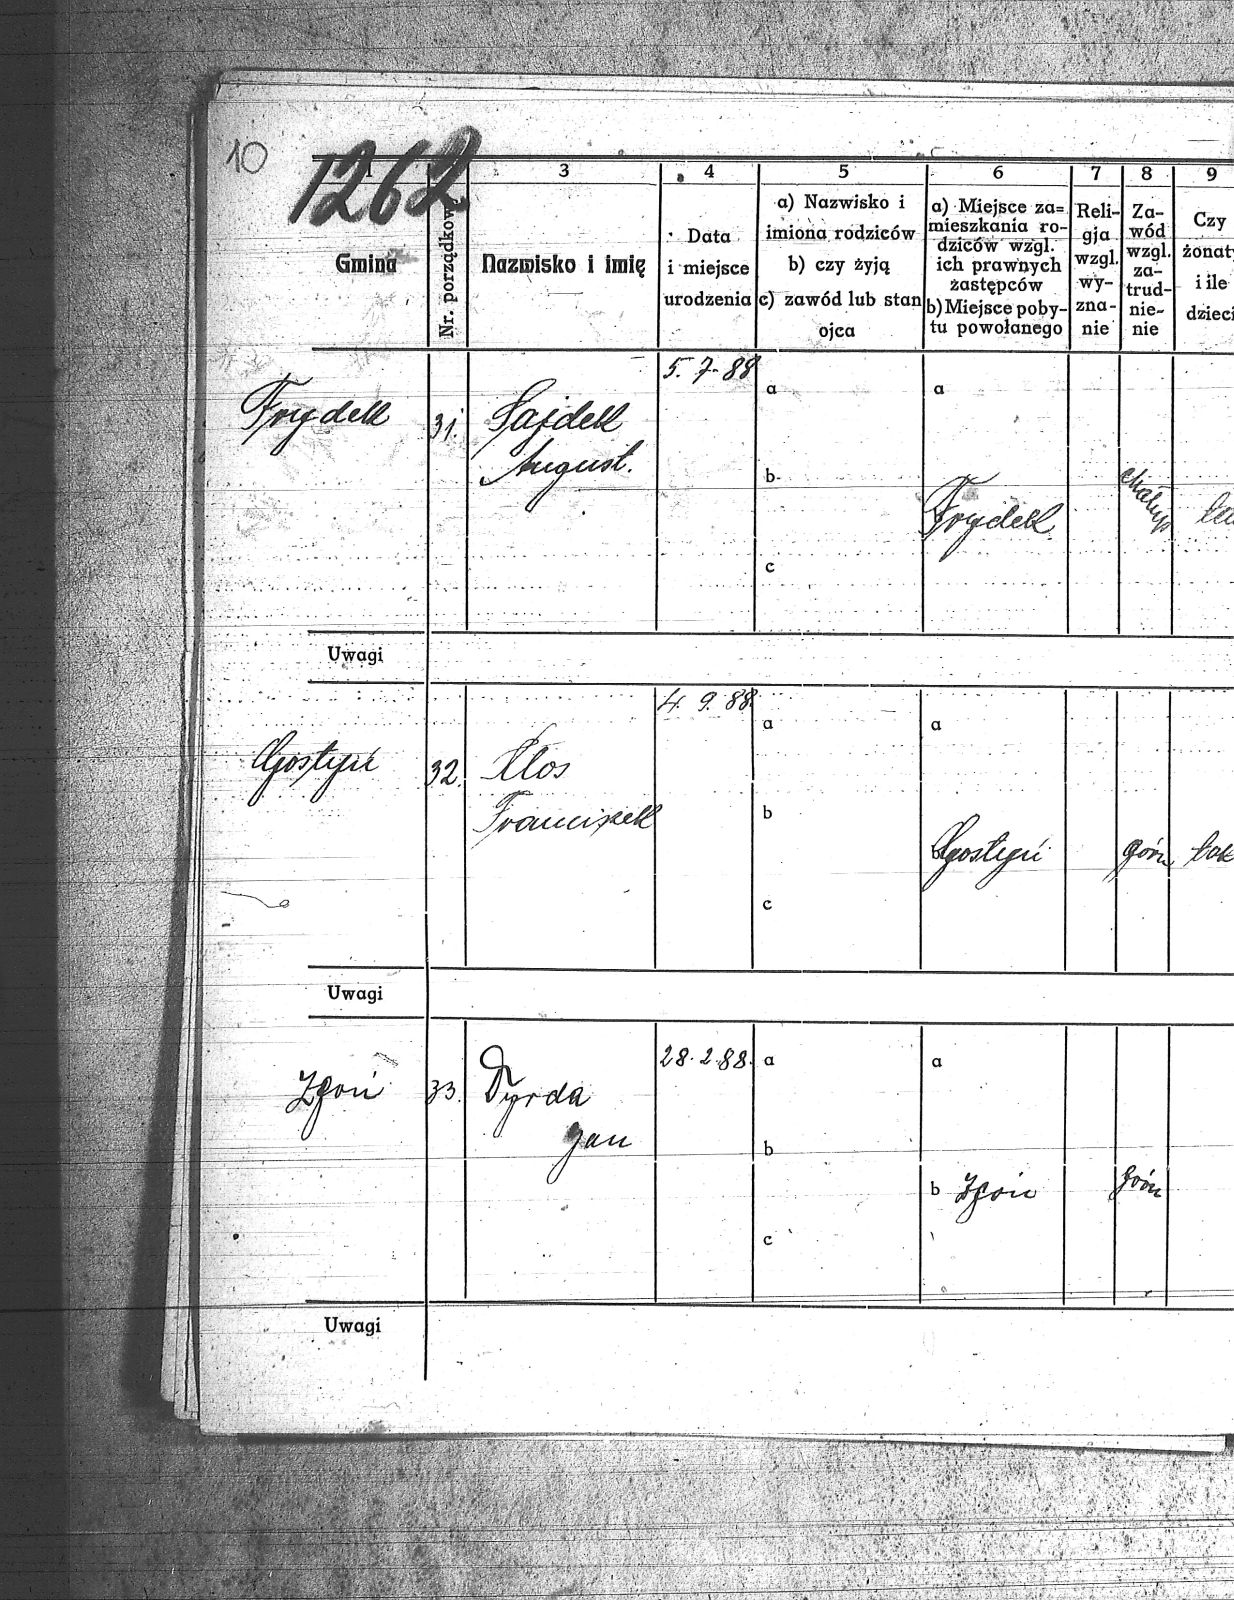 10
1262
1
3
4
5
6
7
8
9
Gmina
Nr. porządkow
Nazwisko i imię
Data
i miejsce
urodzenia
a) Nazwisko i
imiona rodziców
b) czy żyją
c) zawód lub stan
ojca
a) Miejsce za=
mieszkania ro-
dziców wzgl.
ich prawnych
zastępców
b) Miejsce poby-
tu powołanego
Reli-
gja
wzgl.
wy-
zna-
nie
Za-
wód
wzgl.
za-
trud-
nie-
nie
Czy
żonaty
i ile
dzieci
Frydek
31.
Sajdek
August.
5. 7. 88
a
b
c
a
Frydek
chałup
Uwagi
Gostyń
32.
Kłos
Franciszek
4. 9. 88.
a
b
c
a
b
Gostyń
górn
tak
Uwagi
Zgoń
33.
Dyrda
Jan
28. 2. 88.
a
b
c
a
b Zgoń
górn
Uwagi